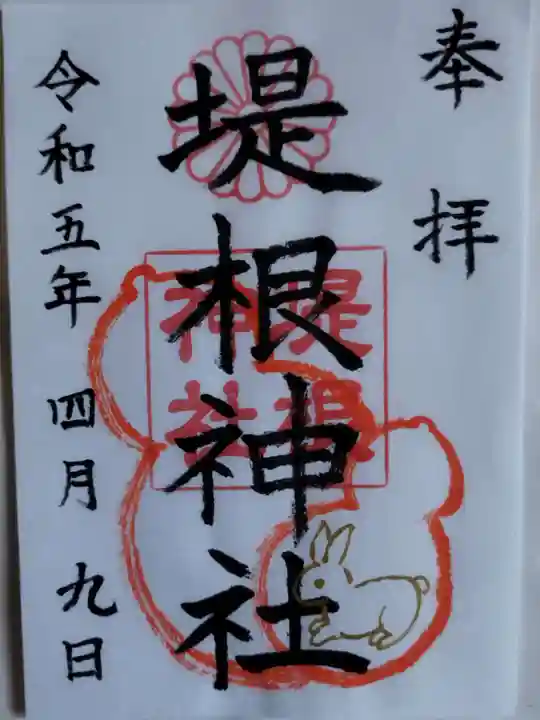 奉拝
堤根神社
堤根神社
令和五年 四月 九日